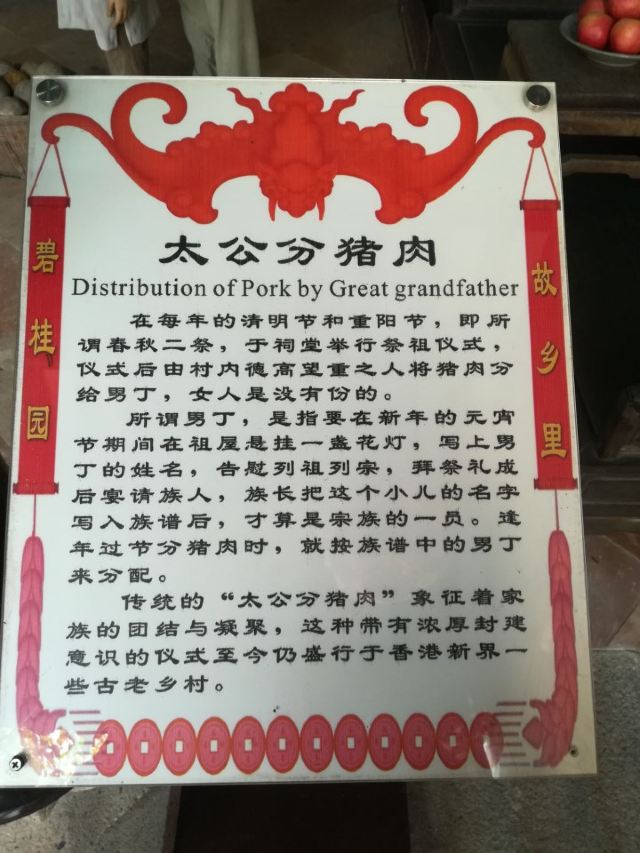 太公分猪肉
Distribution of Pork by Great grandfather
碧桂园
故乡里
在每年的清明节和重阳节，即所
谓春秋二祭，于祠堂举行祭祖仪式，
仪式后由村内德高望重之人将猪肉分
给男丁，女人是没有份的。
所谓男丁，是指要在新年的元宵
节期间在祖屋悬挂一盏花灯，写上男
丁的姓名，告慰列祖列宗，拜祭礼成
后宴请族人，族长把这个小儿的名字
写入族谱后，才算是宗族的一员。逢
年过节分猪肉时，就按族谱中的男丁
来分配。
传统的“太公分猪肉”象征着家
族的团结与凝聚，这种带有浓厚封建
意识的仪式至今仍盛行于香港新界一
些古老乡村。